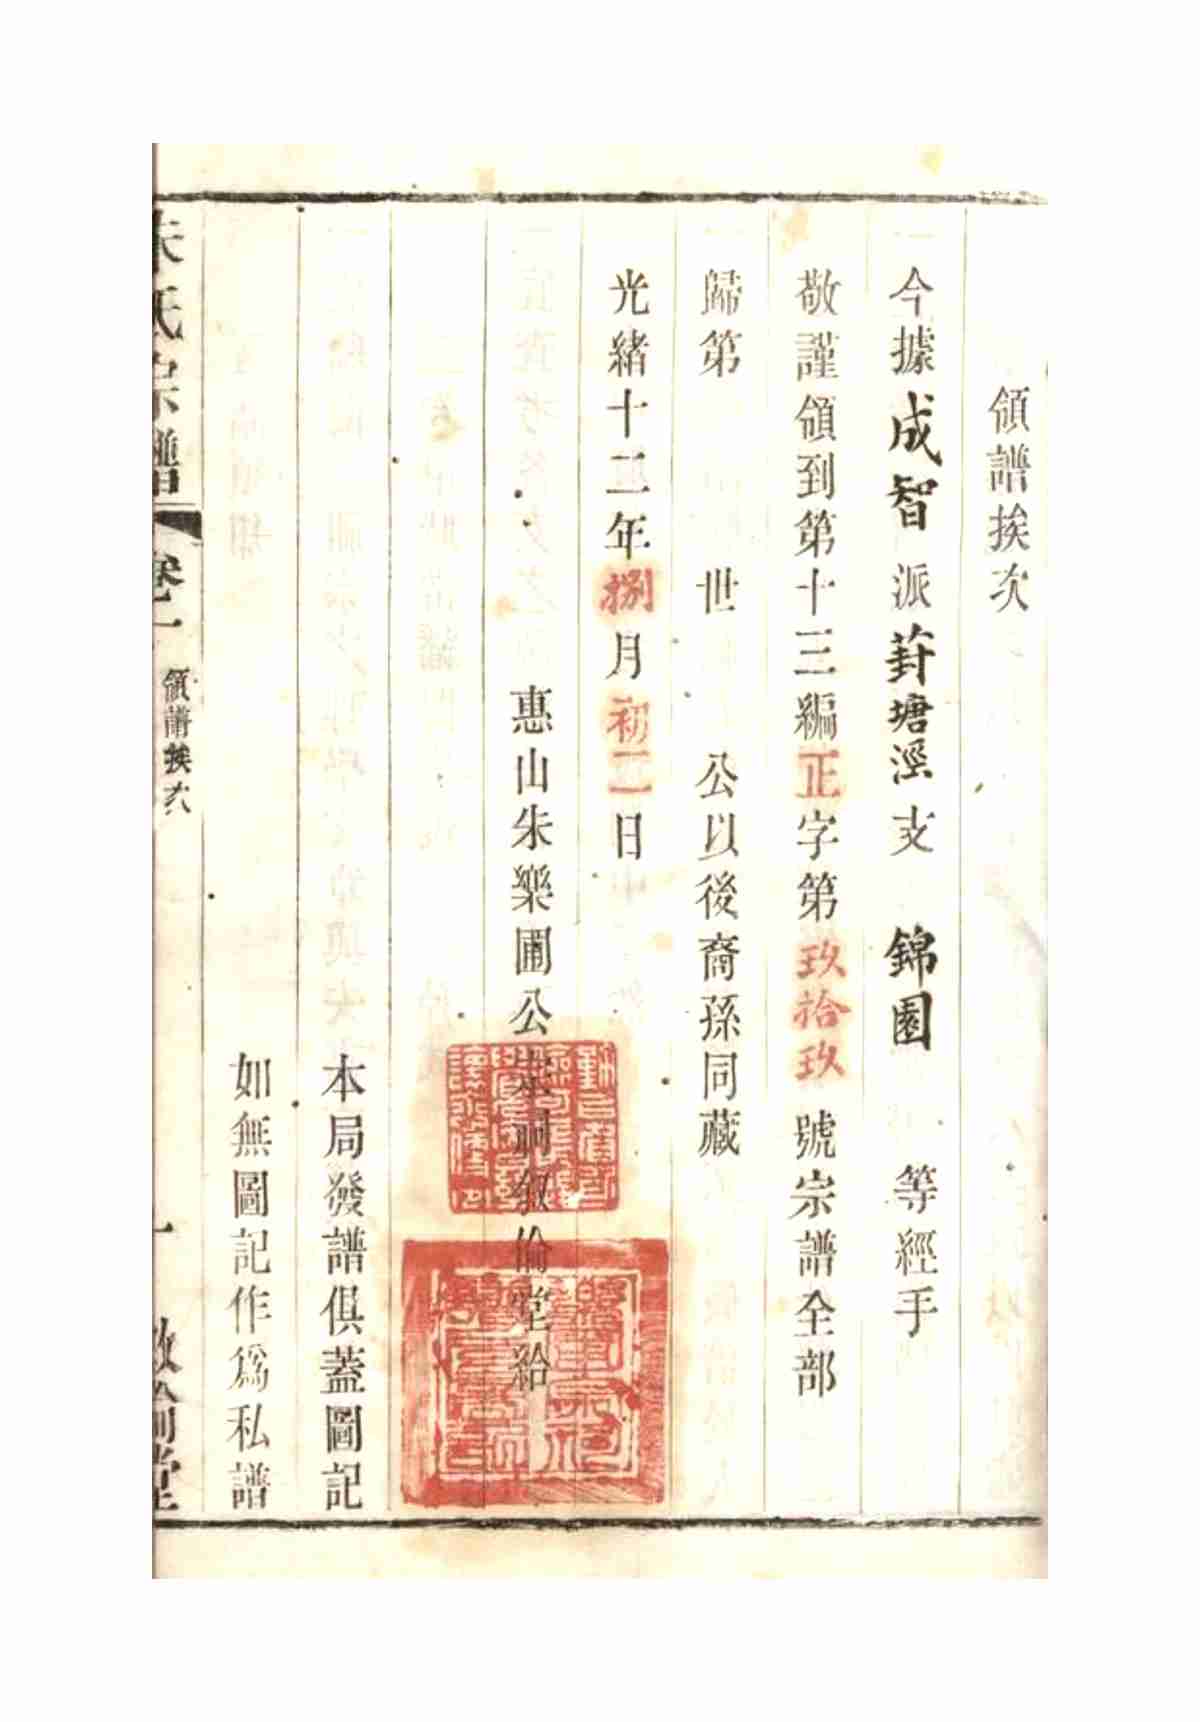 領譜挨次
今據成智派葑塘涇支 錦園 等經手
敬謹領到第十三編正字第玖拾玖號宗譜全部
歸第 世 公以後裔孫同藏
光緒十二年捌月初二日
惠山朱樂圃公 祠叙倫堂給
本局發譜俱蓋圖記
如無圖記作爲私譜
朱氏宗譜 卷一 領譜挨次 一 敘倫堂